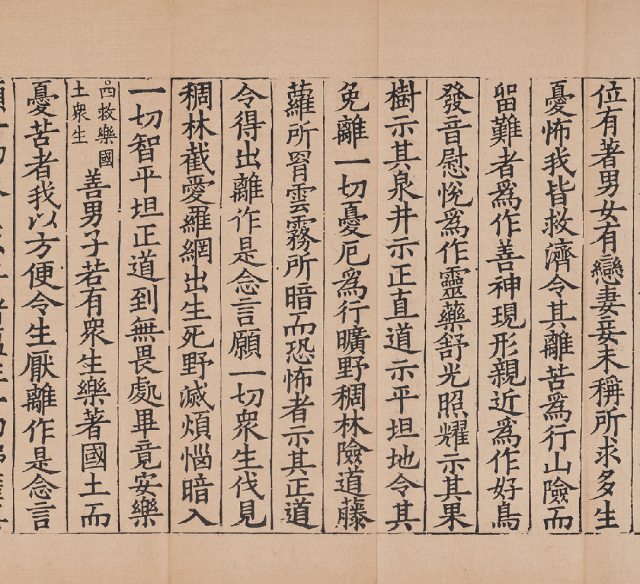 位有著男女有戀妻妾未稱所求多生
憂怖我皆救濟令其離苦爲行山險而
留難者爲作善神現形親近爲作好鳥
發音慰悅爲作靈藥舒光照耀示其果
樹示其泉井示正直道示平坦地令其
免離一切憂厄爲行曠野稠林險道藤
蘿所罥雲霧所暗而恐怖者示其正道
令得出離作是念言願一切衆生伐見
稠林截愛羅網出生死野滅煩惱暗入
一切智平坦正道到無畏處畢竟安樂
救樂國
土衆生
善男子若有衆生樂著國土而
憂苦者我以方便令生厭離作是念言